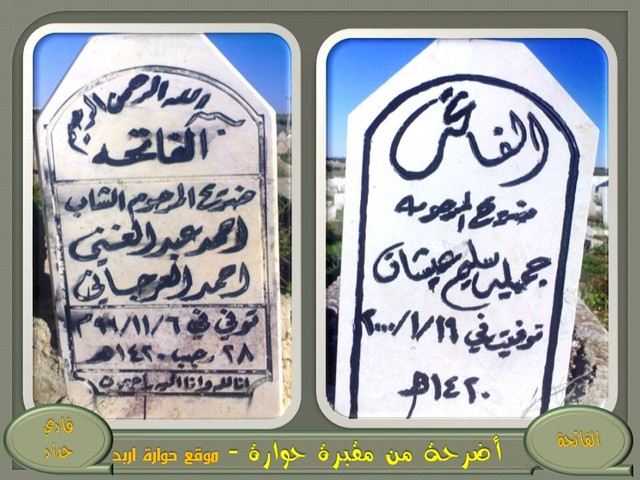 بسم الله الرحمن الرحيم
الفاتحه
ضريح المرحوم الشاب
احمد عبد الغني
احمد العرجاني
توفي في ٩٩/١١/٦م
٢٨ رجب ١٤٢٠هـ
انا لله وانا اليه راجعون
الفاتحة
ضريح المرحومه
جميله سليم حيشان
توفيت في ٢٠٠٠/١/٢٩
١٤٢٠هـ
فادي
حداد
أضرحة من مقبرة حوارة - موقع حوارة اربد
الفاتحة